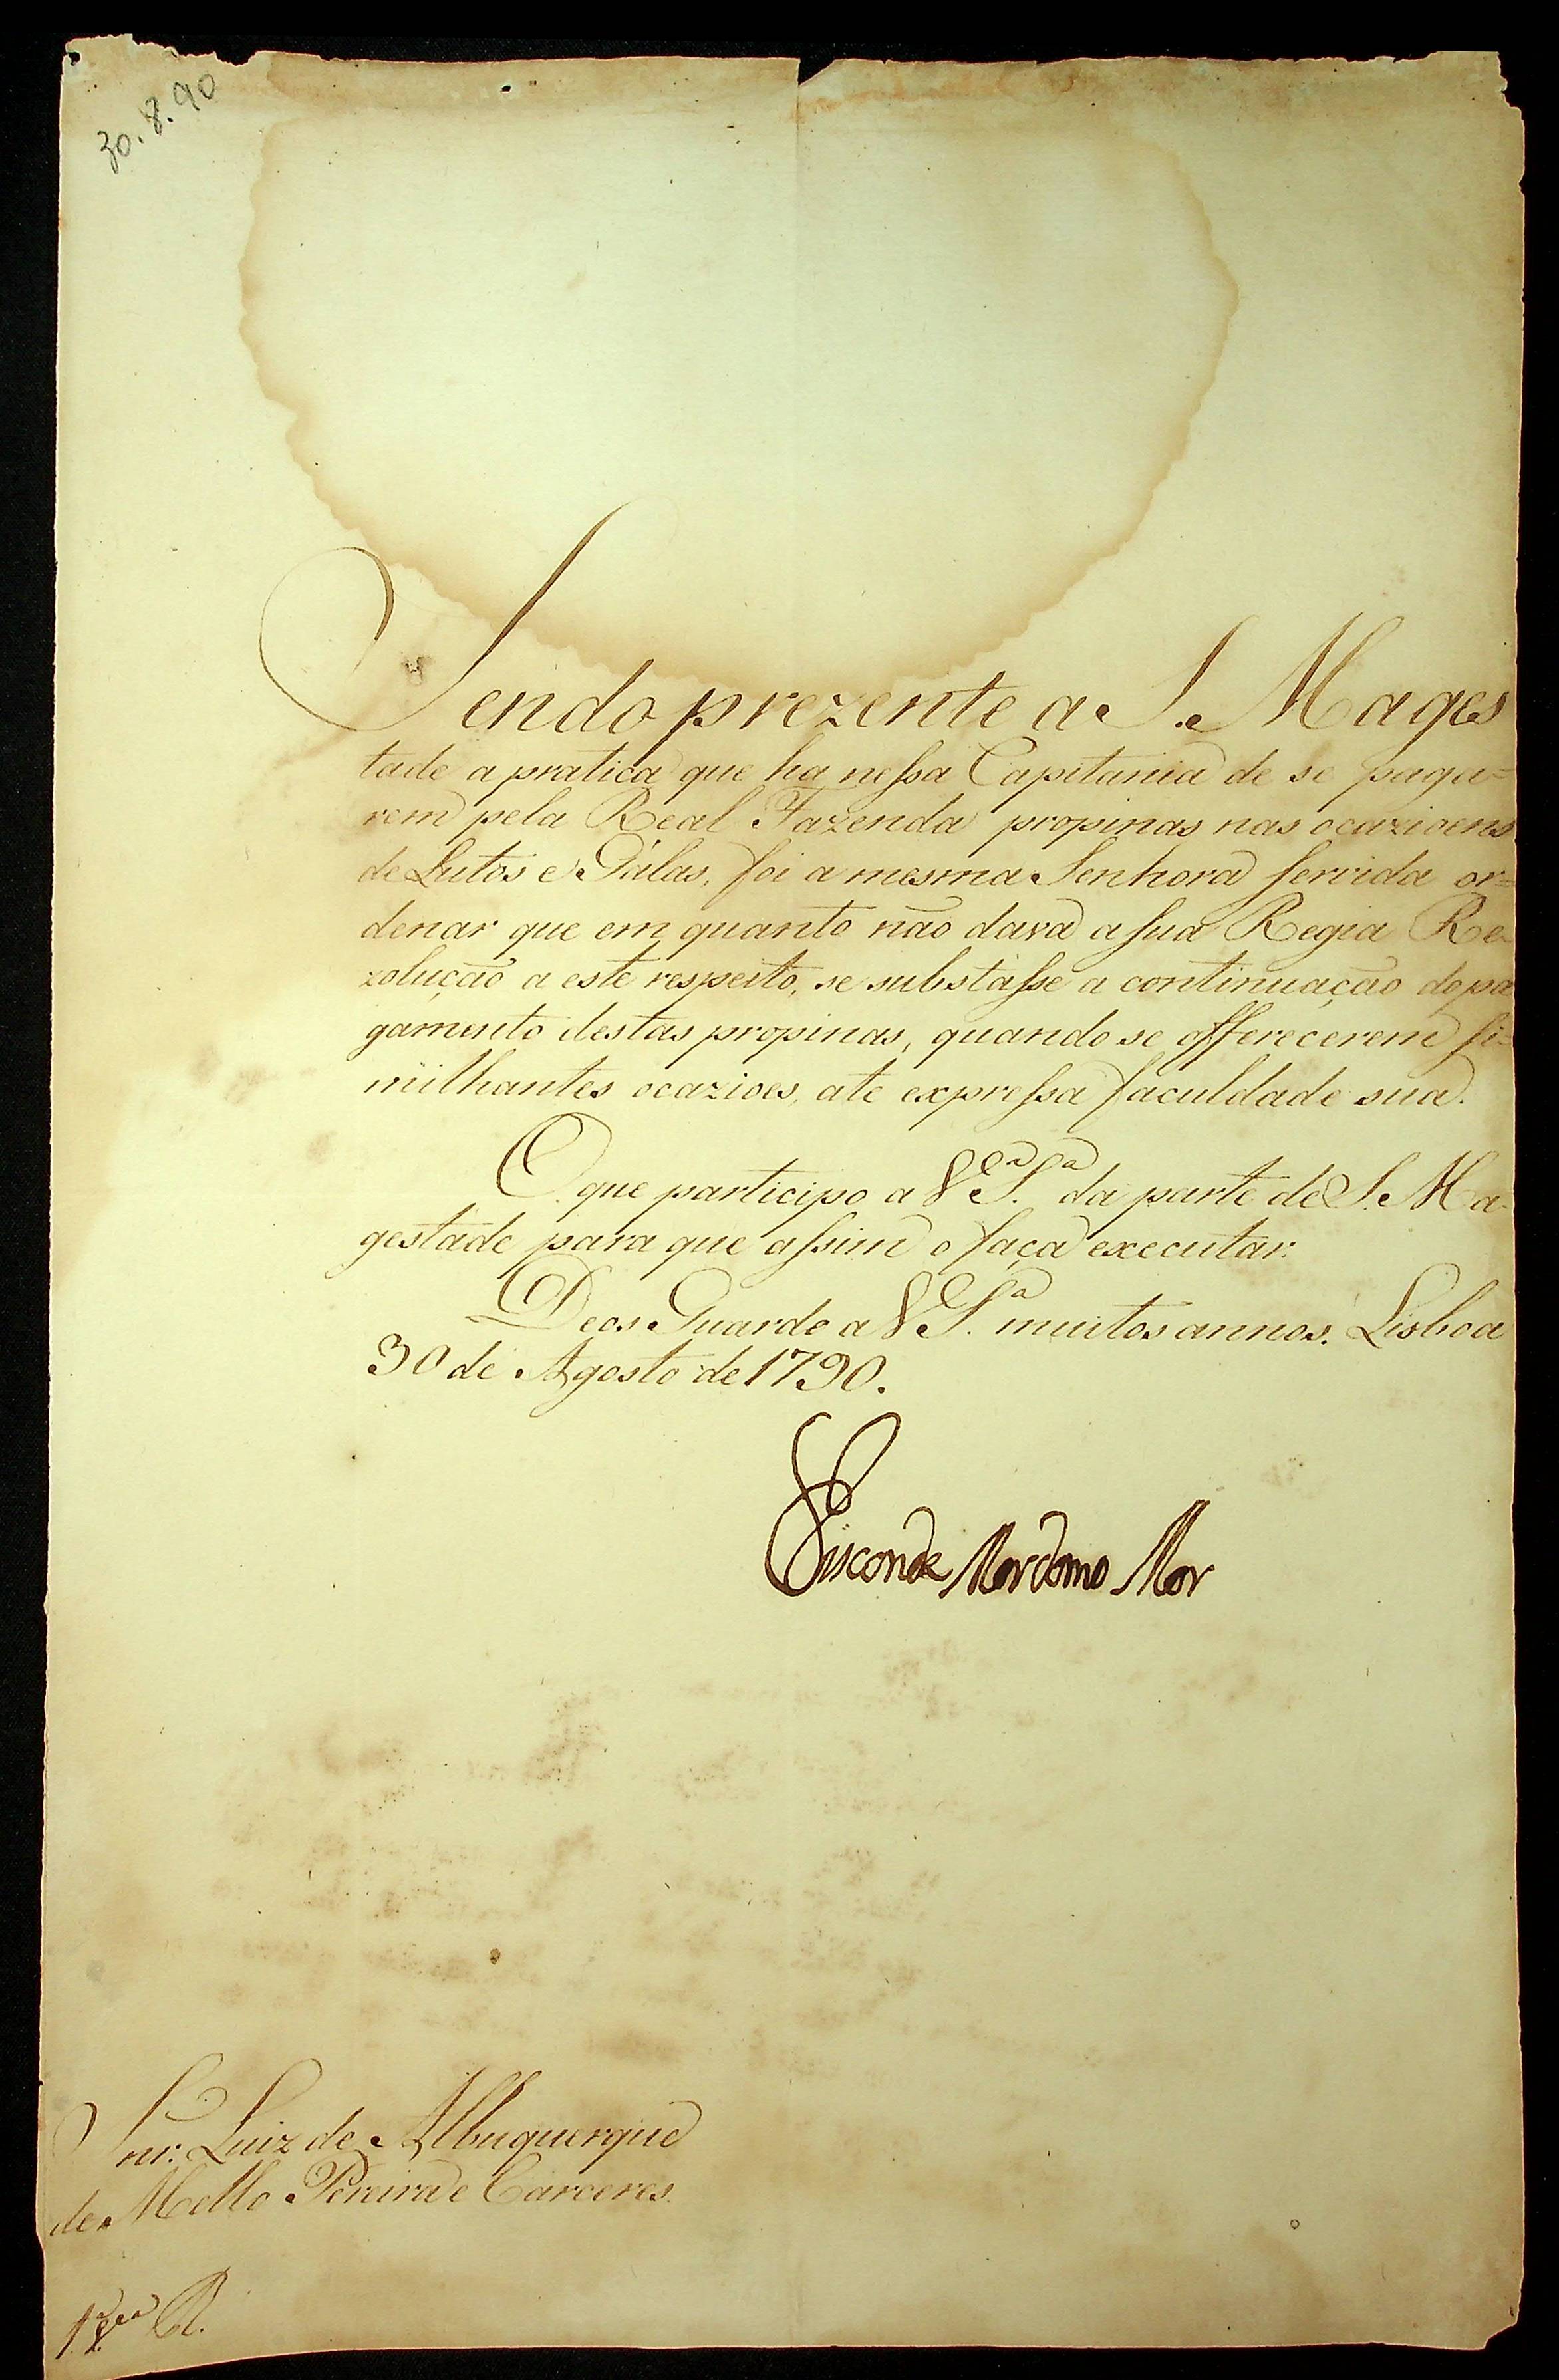 30.8.90
Sendo prezente a S. Mages
tade a pratica que ha nessa Capitania de se paga=
rem pela Real Fazenda propinas nas ocazioens
de Lutos e Gálas, foi a mesma Senhora servida or=
denar que em quanto não dava a sua Regia Re-
zolução a este respeito, se substásse a continuação do pa
gamento destas propinas, quando se offerecerem si=
milhantes ocazioes, ate expressa faculdade sua.
O que participo a V. S.ª da parte de S. Ma-
gestade para que assim o faça executar.
Deos Guarde a V. S.ª muitos annos. Lisboa
30 de Agosto de 1790.
Visconde Mordomo Mor
Snr. Luiz de Albuquerque
de Mello Pereira e Carceres.